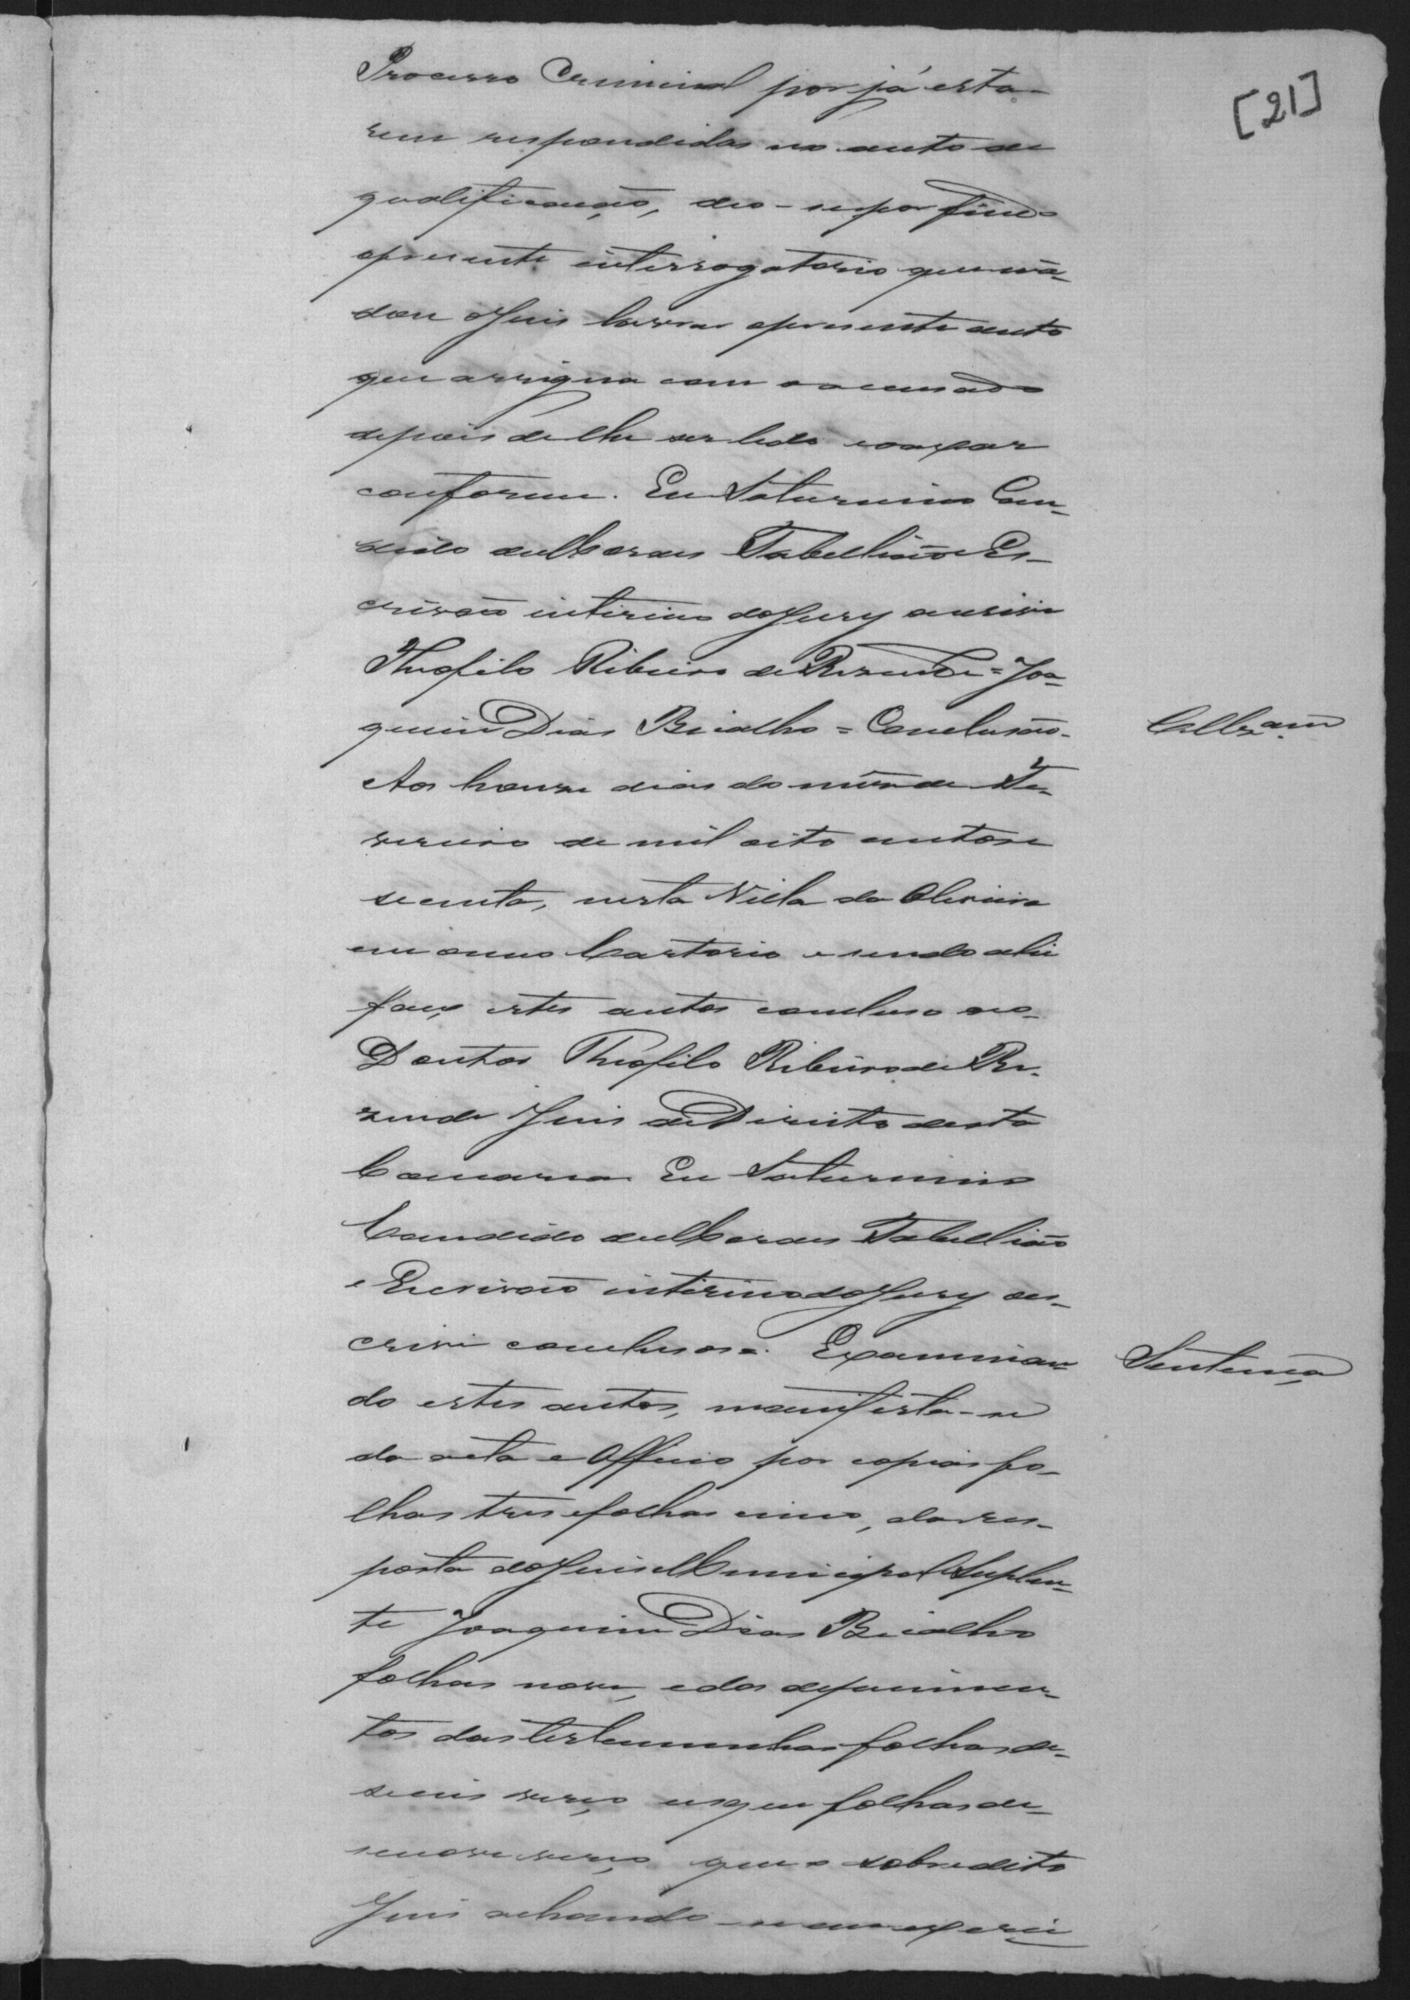 [21]
Processo Criminal por já esta-
rem respondidas no auto de
qualificação, deo-se por findo
opresente interrogatorio que man-
dou oJuis lavrar opresente auto
que assigna com o accusado
depois de lhe ser lido e o achar
conforme. Eu Saturnino Can-
dido deMoraes Tabellião e Es-
crivão interino doJury o escrivi
Theofilo Ribeiro de Resende = Joa-
quim Dias Bicalho = Conclusão.
Cllzam
Aos honze dias do mes de Fe-
vereiro de mil oito centos e
secenta, nesta Villa da Oliveira
em o meo Cartorio e sendo ahi
faço estes autos concluso ao
Doutor Theofilo Ribeiro de Re-
zende Juis de Direito desta
Comarca. Eu Saturnino
Candido deMoraes Tabellião
e Escrivão interino doJury o es-
crivi conclusos =. Examinan-
Sentença
do estes autos, manifesta-se
da acta e Officio por copias fo-
lhas tres e folhas cinco, da res-
posta doJuis Municipal Suplen-
te Joaquim Dias Bicalho
folhas nove, e dos depoimen-
tos das testemunhas folhas de-
seceis verço usque folhas de-
senove verço, que o sobredito
Juis achando-se em exerci